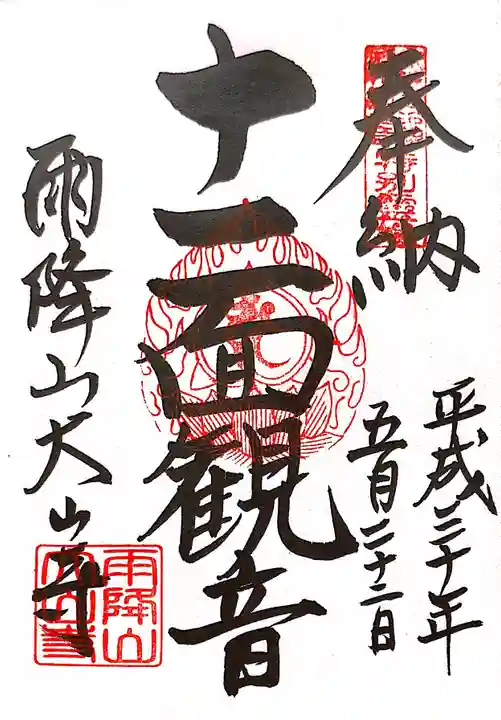 奉納
平成三十年
五月二十二日
十一面観音
雨降山大山寺
雨降山
大山寺